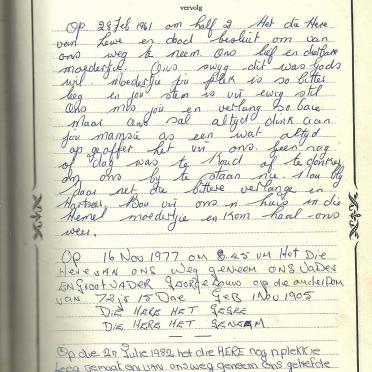 vervolg
Op 28 Feb 1961 om half 2 Het die Here
van Lewe en dood besluit om van
ons weg te neem Ons lief en dierbare
moedertjie. Ons swyg dit was Gods
wil. Moedertjie jou plek is so bitter
leeg en jou stem is vir ewig stil
Ons mis jou en verlang so baie
Maar ons sal altyd dink aan
jou mamsie as een wat altyd
op geoffer het vir ons. Geen nag
of dag was te koud of te donker
om ons by te staan nie. Nou bly
daar net die bittere verlange en
Hartseer. Bou vir ons n huis in die
Hemel moedertjie en kom haal ons
weer.
Op 16 Nov 1977 om 8.45 vm Het Die
Here van ons weg geneem ons vader
en Groot vader George Louw op die ouderdom
van 72 js 15 Dae Geb 1 Nov 1905
Die Here het gegee
Die Here het geneem
Op die 27 Julie 1982 het die HERE nog n plekkie
leeg gemaak en van ons weg geneem ons geliefde